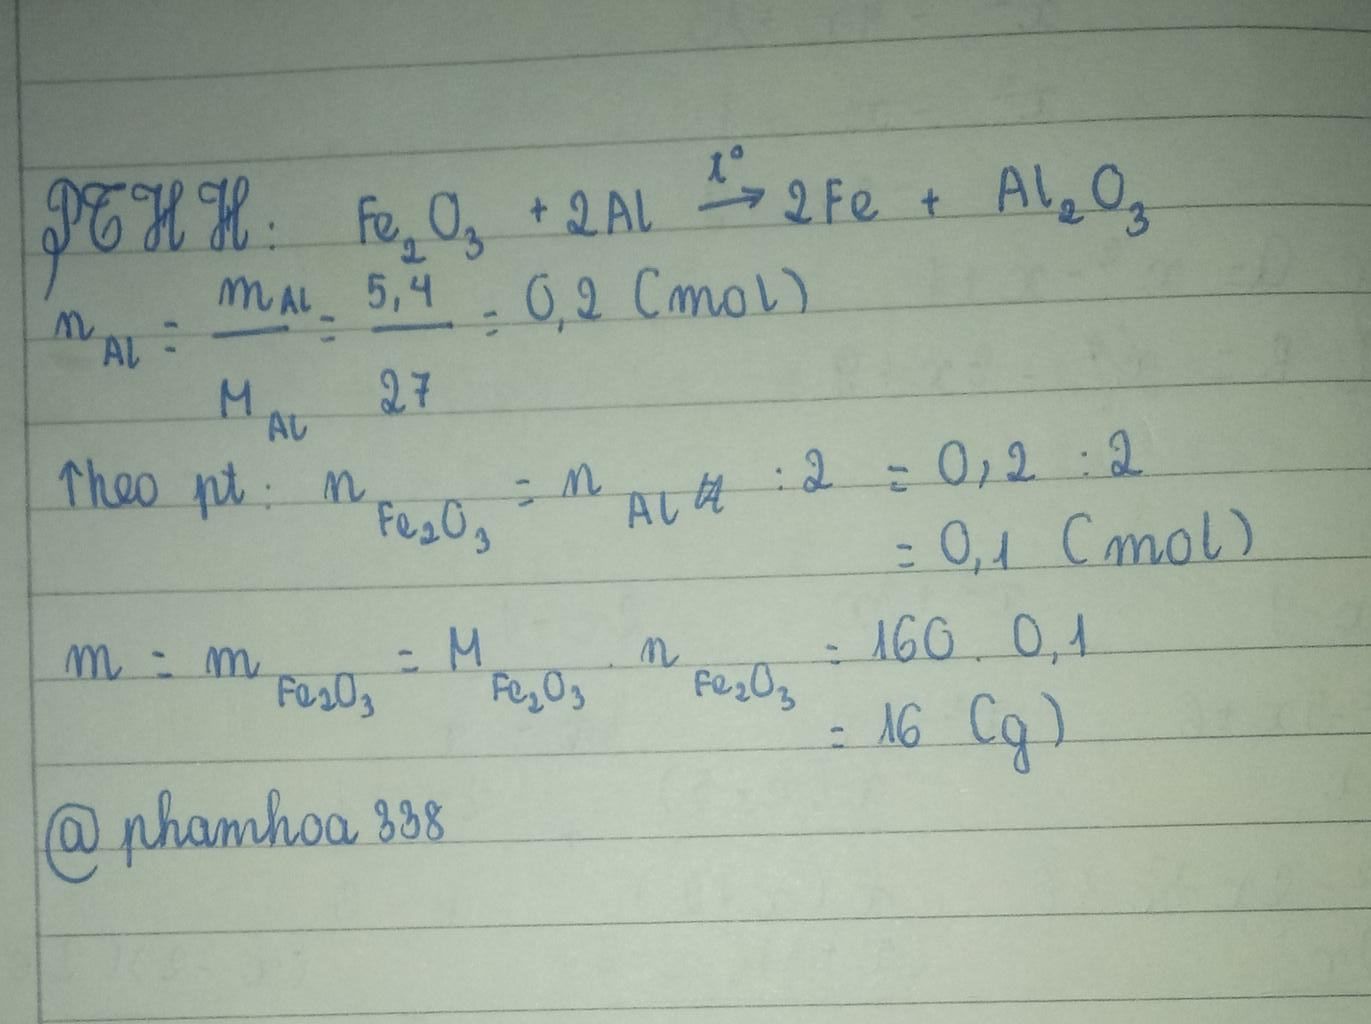 PTHH: Fe₂O₃ + 2Al →(t°) 2Fe + Al₂O₃
n_Al = m_Al / M_Al = 5,4 / 27 = 0,2 (mol)
Theo pt: n_Fe₂O₃ = n_Al : 2 = 0,2 : 2
= 0,1 (mol)
m = m_Fe₂O₃ = M_Fe₂O₃ . n_Fe₂O₃ = 160 . 0,1
= 16 (g)
@ phamhoa 338